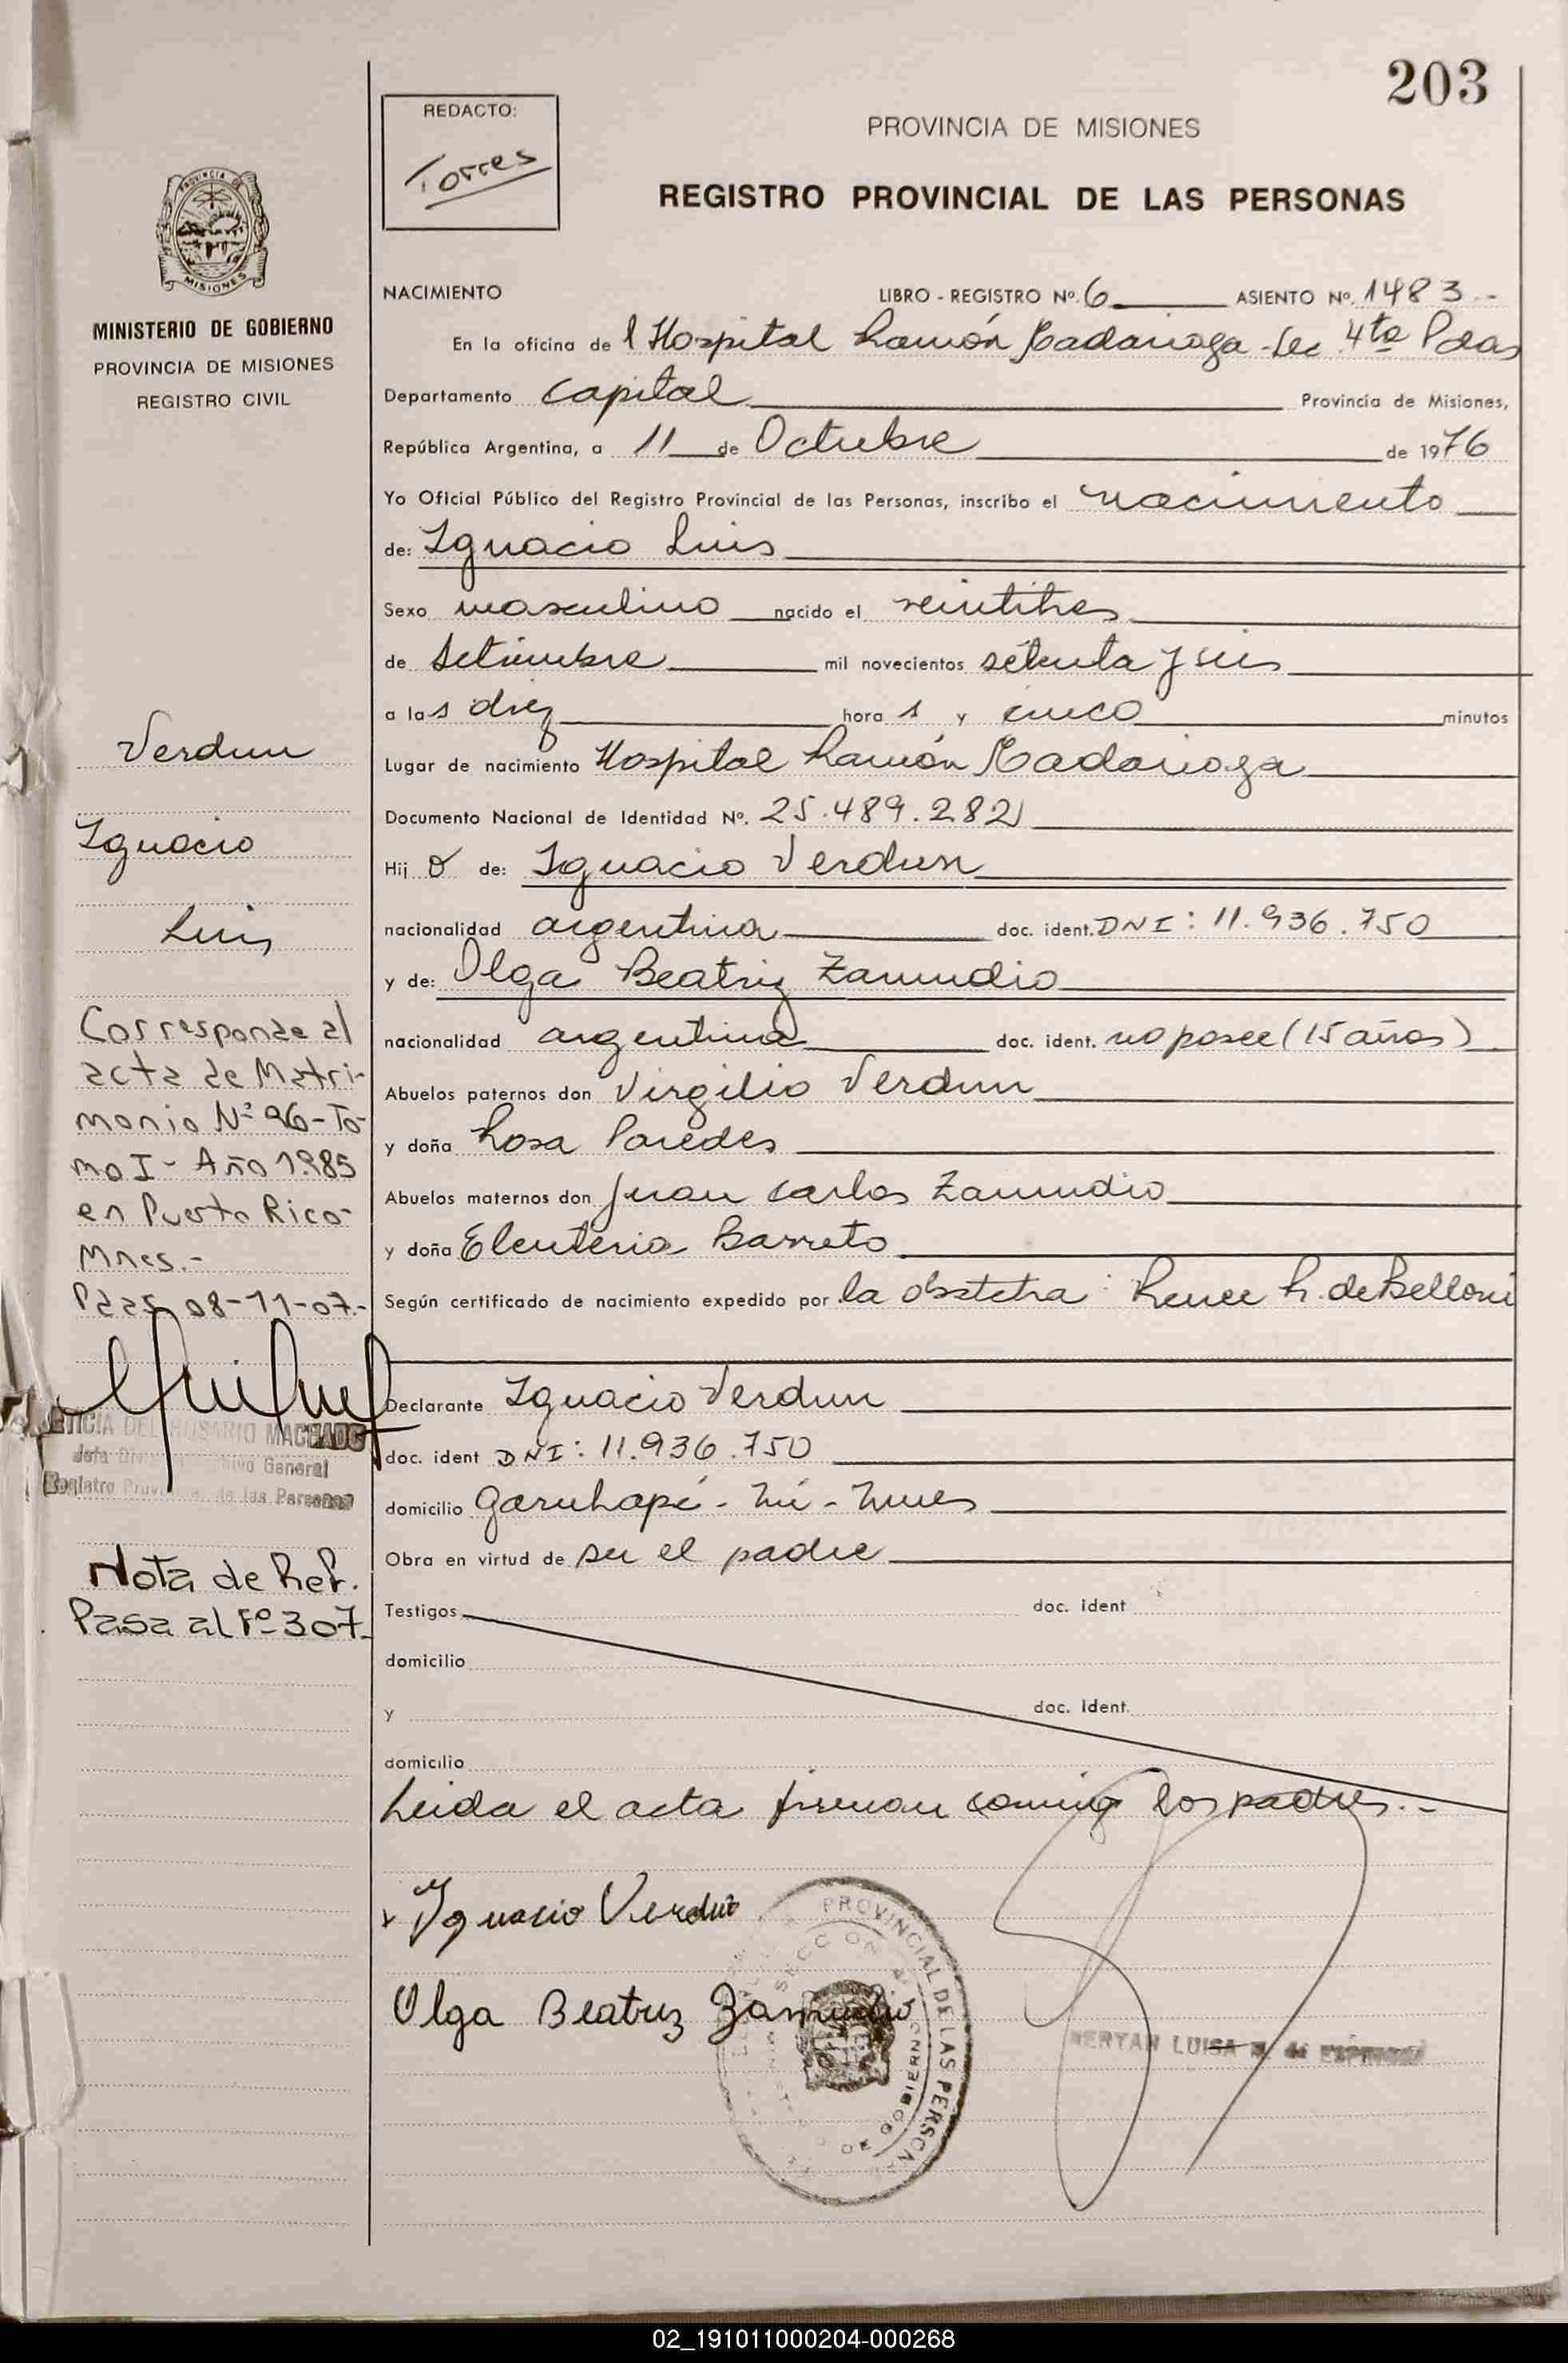 203
REDACTO:
Torres
PROVINCIA DE MISIONES
REGISTRO PROVINCIAL DE LAS PERSONAS
PROVINCIA DE
MISIONES
MINISTERIO DE GOBIERNO
PROVINCIA DE MISIONES
REGISTRO CIVIL
NACIMIENTO LIBRO - REGISTRO Nº. 6 ASIENTO Nº. 1483.-
En la oficina de l Hospital Ramón Madariaga - Sec. 4ta Pdas
Departamento Capital Provincia de Misiones,
República Argentina, a 11 de Octubre de 1976
Yo Oficial Público del Registro Provincial de las Personas, inscribo el nacimiento
de: Ignacio Luis
Sexo masculino nacido el veintitres
de Setiembre mil novecientos setenta y seis
a las diez horas y cinco minutos
Lugar de nacimiento Hospital Ramón Madariaga
Documento Nacional de Identidad Nº. 25.489.282
Hijo de: Ignacio Verdun
nacionalidad argentina doc. ident. DNI: 11.936.750
y de: Olga Beatriz Zamudio
nacionalidad argentina doc. ident. no posee (15 años)
Abuelos paternos don Virgilio Verdun
y doña Rosa Paredes
Abuelos maternos don Juan Carlos Zamudio
y doña Eleuteria Barreto
Según certificado de nacimiento expedido por la obstetra: Renee R. de Belloni
Declarante Ignacio Verdun
doc. ident DNI: 11.936.750
domicilio Garuhapé - Mí - Mnes
Obra en virtud de ser el padre
Testigos doc. ident
domicilio
y doc. ident.
domicilio
Leida el acta firman conmigo los padres.-
Ignacio Verdun
Olga Beatriz Zamudio
PROVINCIAL DE LAS PERSONAS
SECCION 4ª
DE GOBIERNO
MERYAN LUISA
Verdun
Ignacio
Luis
Corresponde al
acta de Matri-
monio Nº 96-To-
mo I- Año 1985
en Puerto Rico-
Mnes.-
Pdas, 08-11-07.-
LETICIA DEL ROSARIO MACHADO
Jefa División Archivo General
Registro Provincial de las Personas
Nota de Ref.
Pasa al Fº 307.
02_191011000204-000268